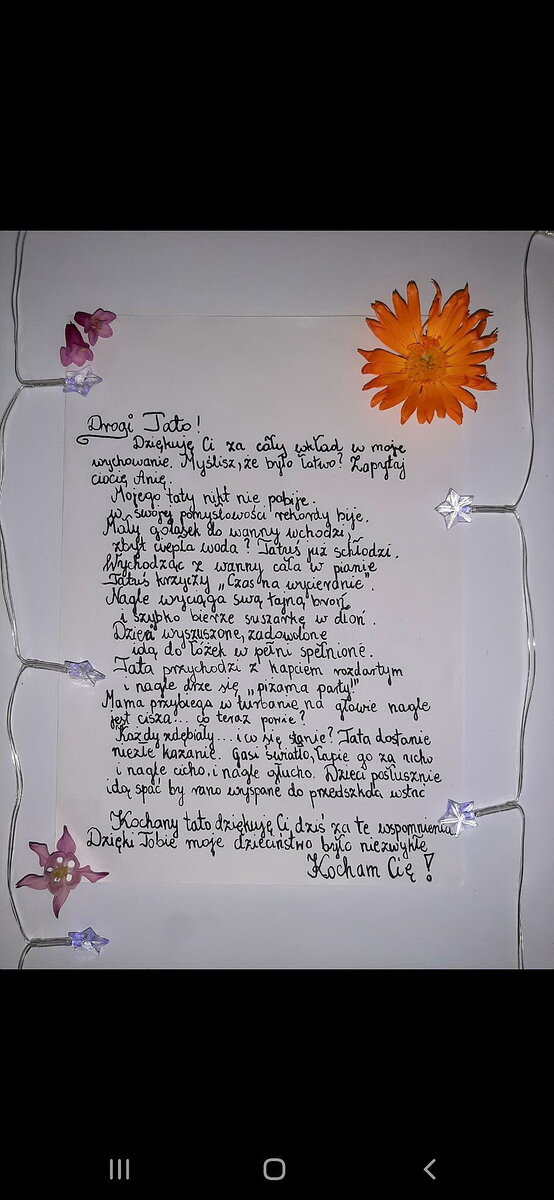 Drogi Tato!
Dziękuję Ci za cały wkład w moje
wychowanie. Myślisz, że było łatwo? Zapytaj
ciocię Anię.
Mojego taty nikt nie pobije.
w swojej pomysłowości rekordy bije.
Mały golasek do wanny wchodzi,
zbyt ciepła woda? Tatuś już schłodzi.
Wychodząc z wanny cała w pianie
Tatuś krzyczy „Czas na wycieranie”.
Nagle wyciąga swą tajną broń
i szybko bierze suszarkę w dłoń.
Dzieci wyszuszone, zadowolone
idą do łóżek w pełni spełnione.
Tata przychodzi z kapciem rozdartym
i nagle drze się „piżama party!”
Mama przybiega w turbanie na głowie nagle
jest cisza... co teraz powie?
Każdy zdębiały... i co się stanie? Tata dostanie
niezłe kazanie. Gasi światło, łapie go za ucho
i nagle cicho, i nagle głucho. Dzieci posłusznie
idą spać by rano wyspane do przedszkola wstać
Kochany tato dziękuję Ci, dziś za te wspomnienia
Dzięki Tobie moje dzieciństwo było niezwykłe
Kocham Cię!